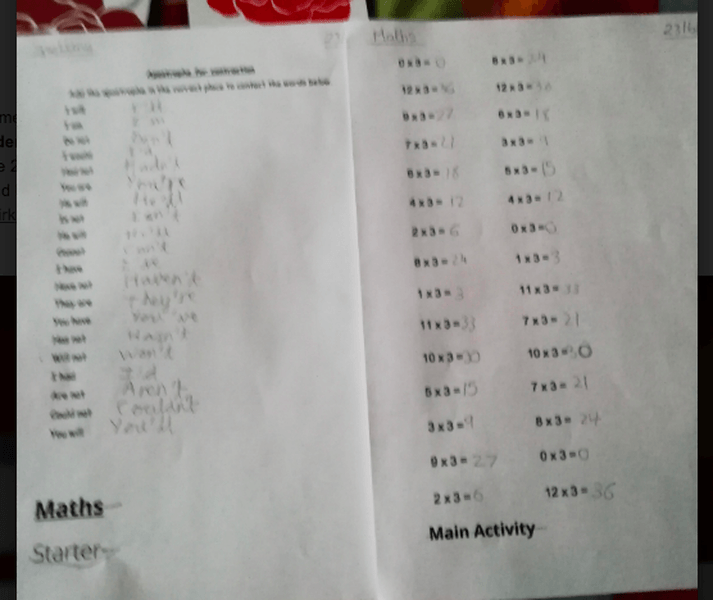 Spelling
Apostrophe for contraction
Add the apostrophe in the correct place to contract the words below
I will I'll
I am I'm
Do not Don't
I would I'd
Had not Hadn't
You are You're
He will He'll
Is not
He will He'll
Cannot Can't
I have I've
Have not Haven't
They are They're
You have You've
Has not Hasn't
Will not Won't
I had I'd
Are not Aren't
Could not Couldn't
You will You'll
Maths
Starter
Maths
0x3= 0 8x3= 24
12x3= 36 12x3= 36
9x3= 27 6x3= 18
7x3= 21 3x3= 9
6x3= 18 5x3= 15
4x3= 12 4x3= 12
2x3= 6 0x3= 0
8x3= 24 1x3= 3
1x3= 3 11x3= 33
11x3= 33 7x3= 21
10x3= 30 10x3= 30
5x3= 15 7x3= 21
3x3= 9 8x3= 24
9x3= 27 0x3= 0
2x3= 6 12x3= 36
Main Activity